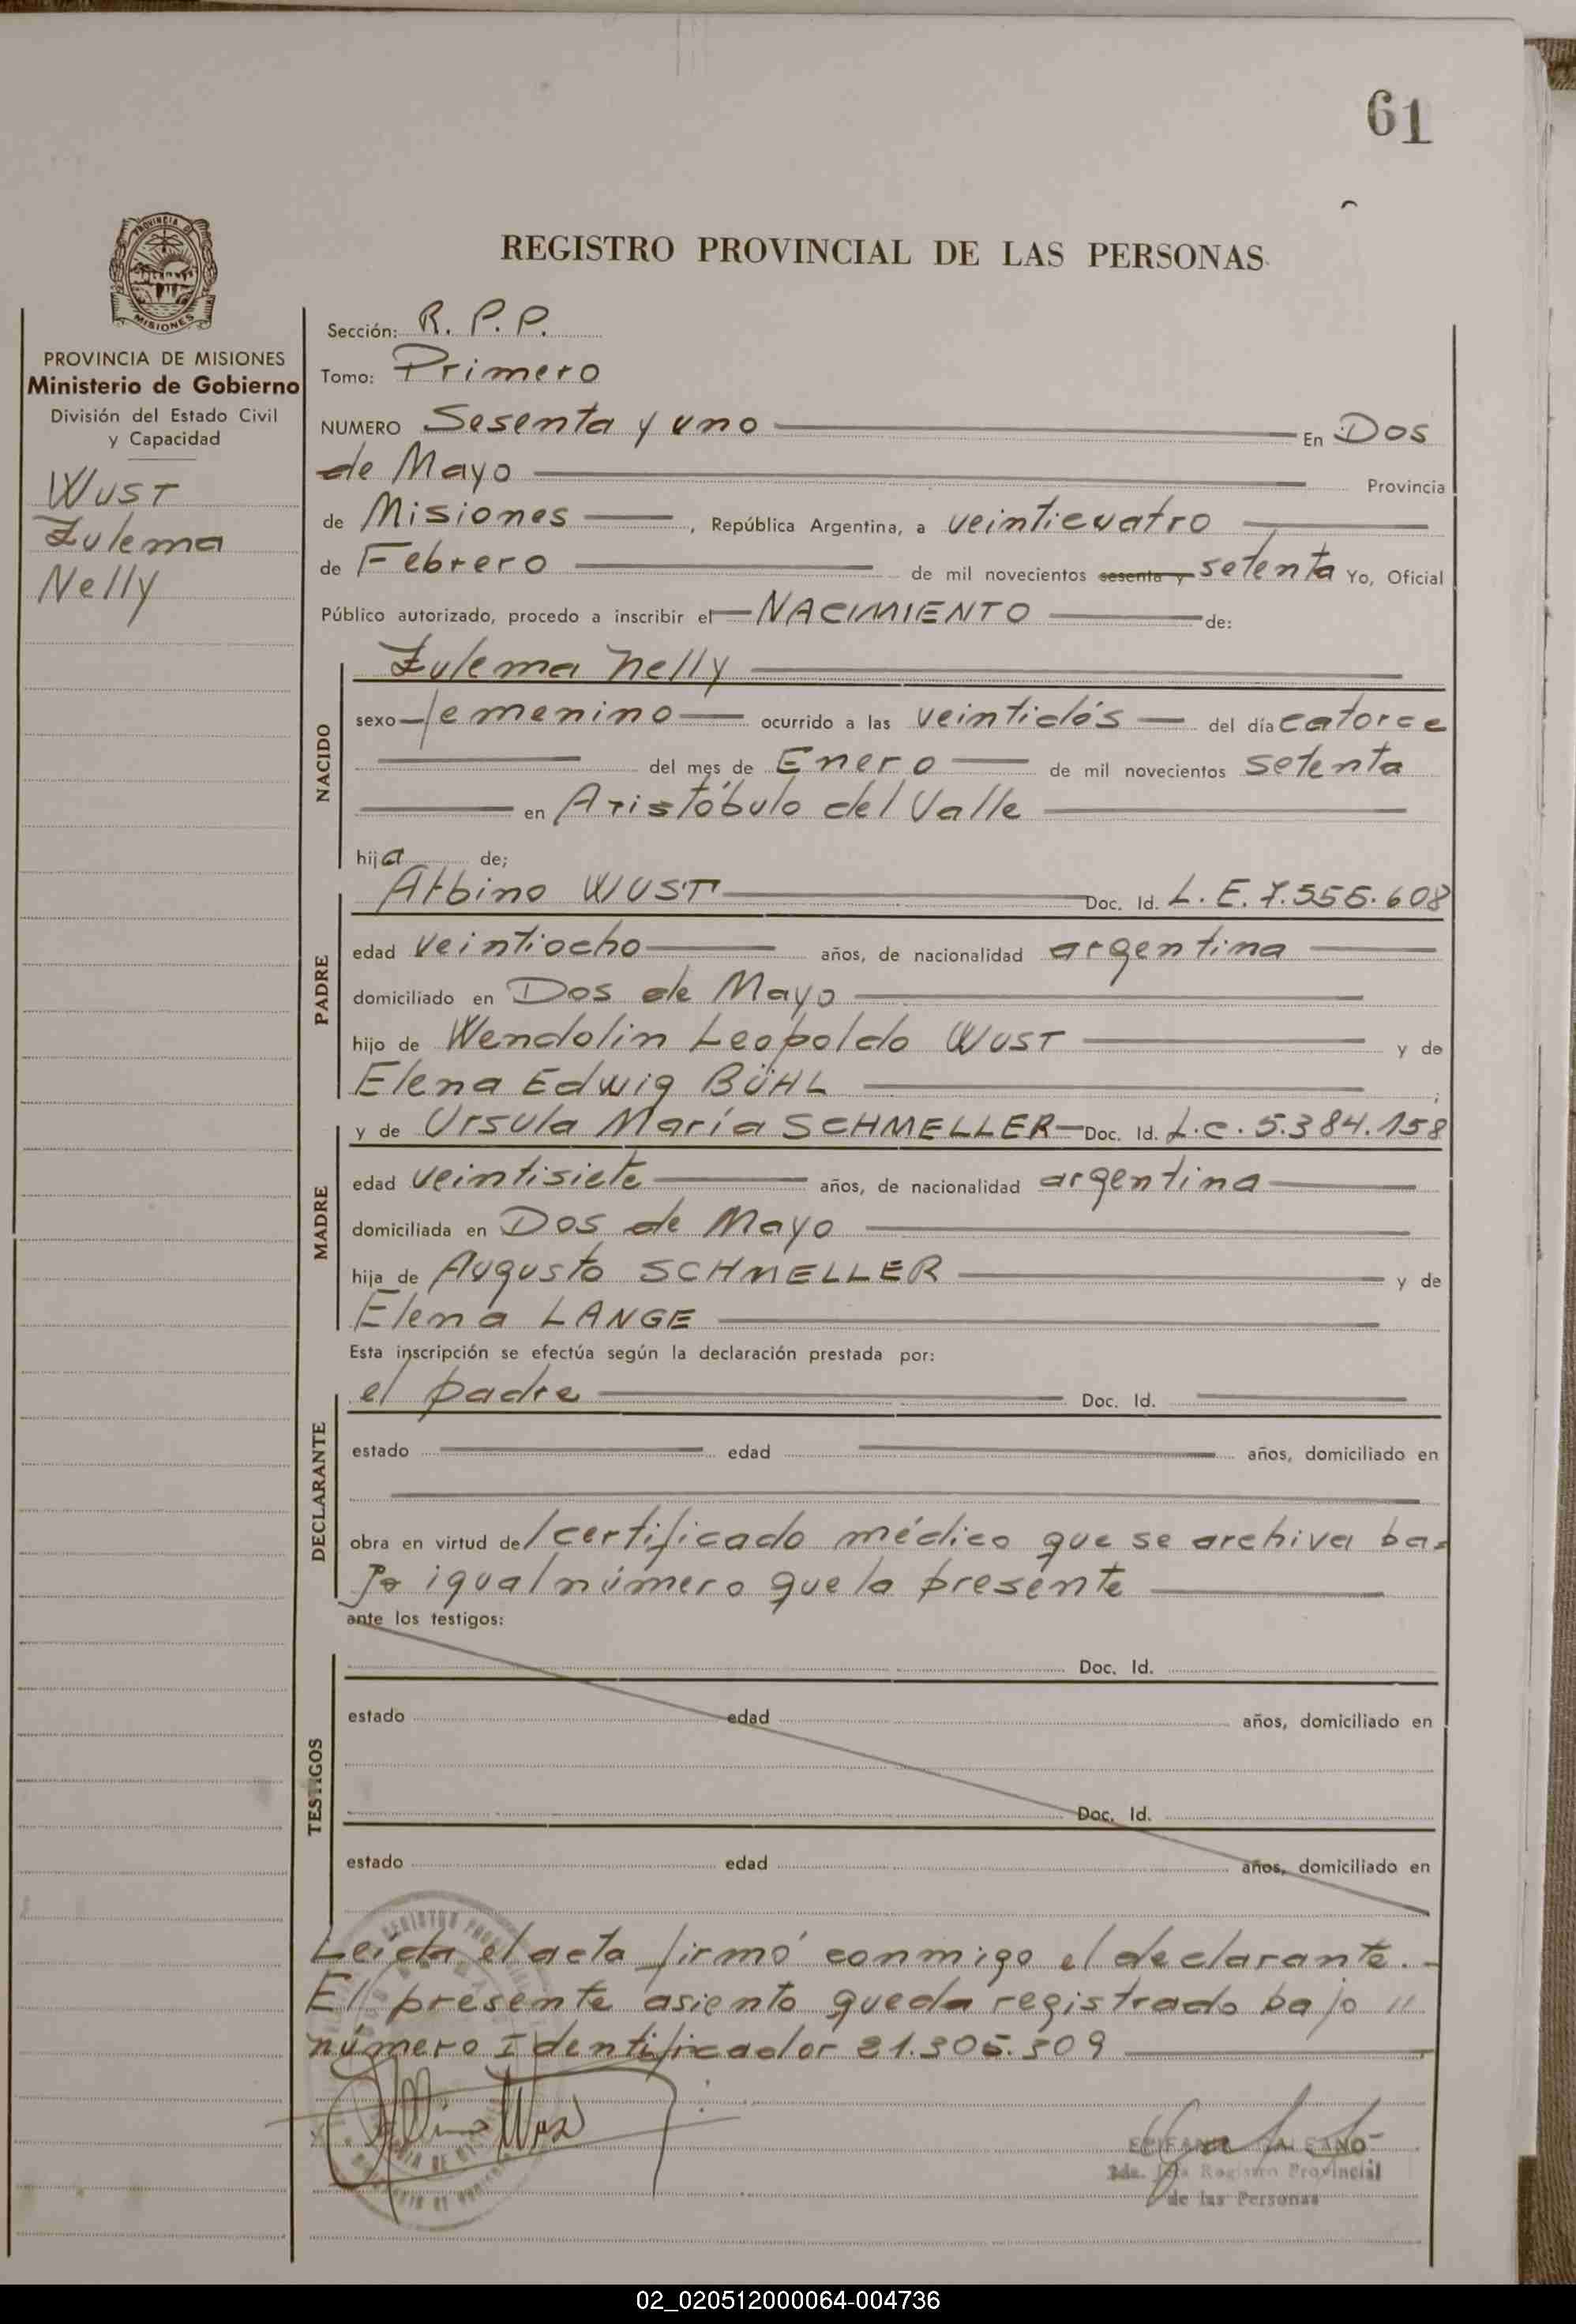 61
REGISTRO PROVINCIAL DE LAS PERSONAS
PROVINCIA DE MISIONES
Ministerio de Gobierno
División del Estado Civil
y Capacidad
WUST
Zulema
Nelly
Sección: R. P. P.
Tomo: Primero
NUMERO Sesenta y uno En Dos
de Mayo Provincia
de Misiones, República Argentina, a veinticuatro
de Febrero de mil novecientos sesenta y setenta Yo, Oficial
Público autorizado, procedo a inscribir el NACIMIENTO de:
NACIDO
Zulema Nelly
sexo femenino ocurrido a las veintidós del día catorce
del mes de Enero de mil novecientos setenta
en Aristóbulo del Valle
hija de;
PADRE
Albino WUST Doc. Id. L. E. 7.556.608
edad veintiocho años, de nacionalidad argentina
domiciliado en Dos de Mayo
hijo de Wendolin Leopoldo WUST y de
Elena Edwig BÜHL;
MADRE
y de Ursula María SCHMELLER Doc. Id. L.C. 5.384.158
edad veintisiete años, de nacionalidad argentina
domiciliada en Dos de Mayo
hija de Augusto SCHMELLER y de
Elena LANGE
Esta inscripción se efectúa según la declaración prestada por:
DECLARANTE
el padre Doc. Id.
estado edad años, domiciliado en
obra en virtud del certificado médico que se archiva ba-
jo igual número que la presente
ante los testigos:
TESTIGOS
Doc. Id.
estado edad años, domiciliado en
Doc. Id.
estado edad años, domiciliado en
Leída el acta firmó conmigo el declarante.-
El presente asiento queda registrado bajo "
número Identificador 21.305.309
Albino Wust
Registro Provincial
de las Personas
02_020512000064-004736